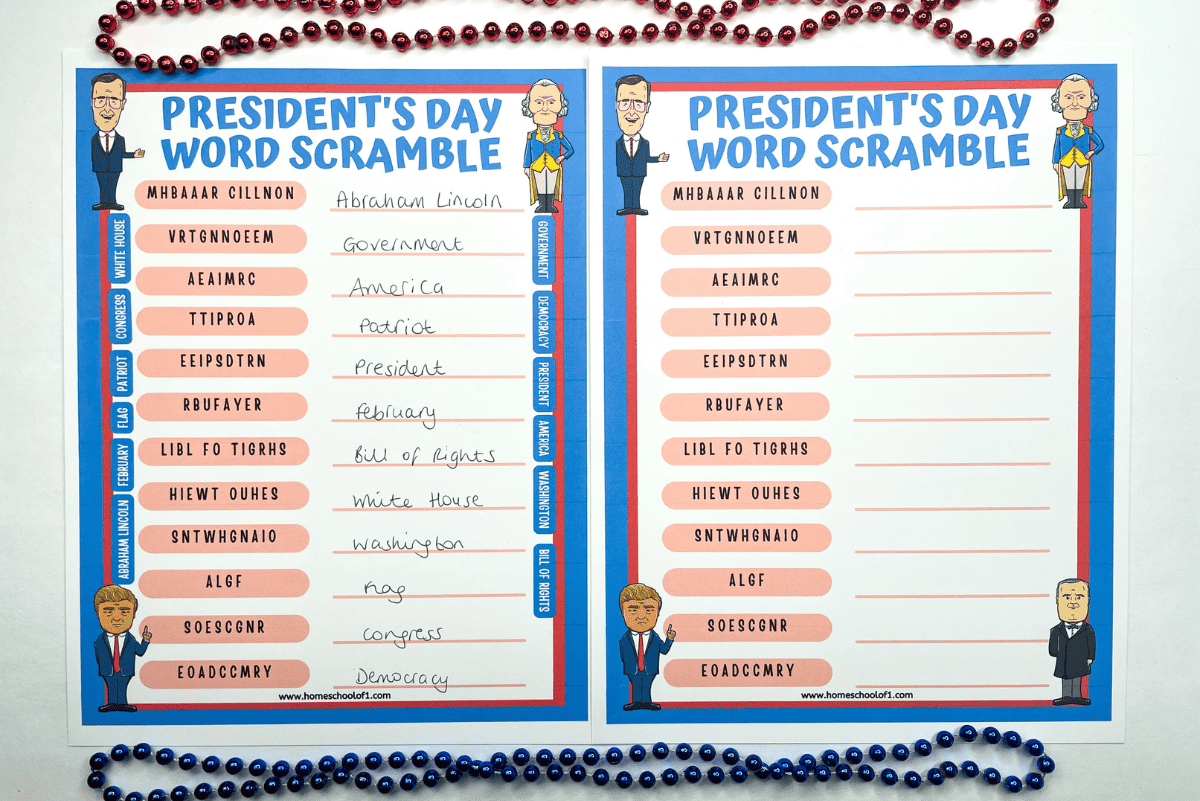 PRESIDENT'S DAY
WORD SCRAMBLE
MHBAAAR CILLNON Abraham Lincoln
VRTGNNOEEM Government
AEAIMRC America
TTIPROA Patriot
EEIPSDTRN President
RBUFAYER february
LIBL FO TIGRHS Bill of Rights
HIEWT OUHES White House
SNTWHGNAIO Washington
ALGF Flag
SOESCGNR Congress
EOADCCMRY Democracy
WHITE HOUSE
CONGRESS
PATRIOT
FLAG
FEBRUARY
ABRAHAM LINCOLN
GOVERNMENT
DEMOCRACY
PRESIDENT
AMERICA
WASHINGTON
BILL OF RIGHTS
www.homeschoolof1.com
PRESIDENT'S DAY
WORD SCRAMBLE
MHBAAAR CILLNON
VRTGNNOEEM
AEAIMRC
TTIPROA
EEIPSDTRN
RBUFAYER
LIBL FO TIGRHS
HIEWT OUHES
SNTWHGNAIO
ALGF
SOESCGNR
EOADCCMRY
www.homeschoolof1.com